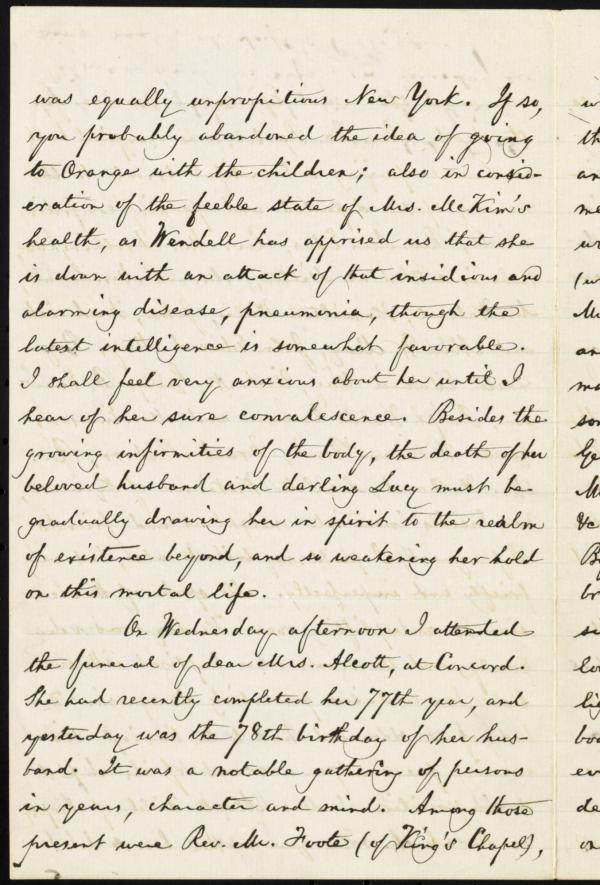 was equally unpropitious New York. If so,
you probably abandoned the idea of going
to Orange with the children; also in consid-
eration of the feeble state of Mrs. McKim's
health, as Wendell has apprised us that she
is down with an attack of that insidious and
alarming disease, pneumonia, though the
latest intelligence is somewhat favorable.
I shall feel very anxious about her until I
hear of her sure convalescence. Besides the
growing infirmities of the body, the death of her
beloved husband and darling Lucy must be
gradually drawing her in spirit to the realm
of existence beyond, and so weakening her hold
on this mortal life.
On Wednesday afternoon I attended
the funeral of dear Mrs. Alcott, at Concord.
She had recently completed her 77th year, and
yesterday was the 78th birthday of her hus-
band. It was a notable gathering of persons
in years, character and mind. Among those
present were Rev. Mr. Foote (of King's Chapel),